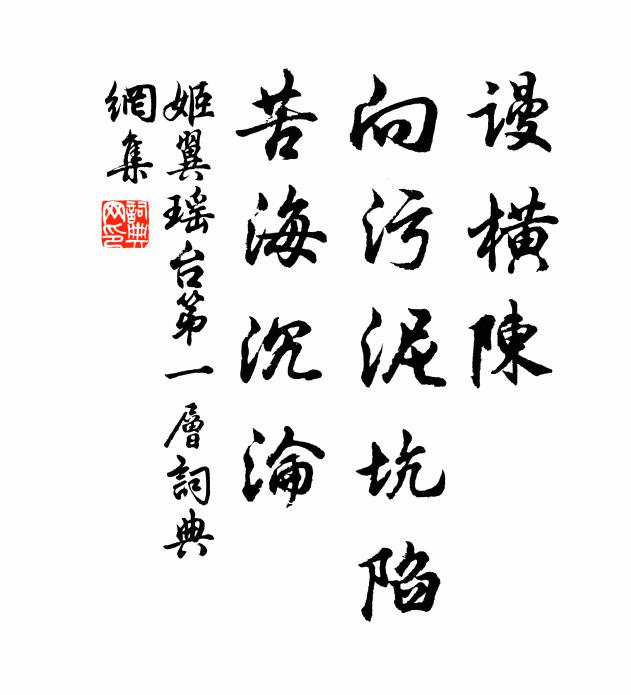 謾橫陳
向污泥坑陷
苦海沉淪
姬翼瑶台第一層詞典
網集
詞典
网印